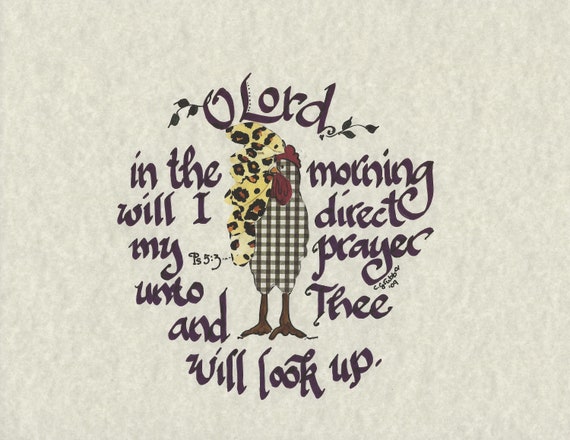 O Lord
in the morning
will I direct
my Ps 5:3 prayer
unto Thee
and
will look up.
'09